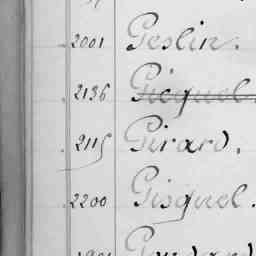 2001 Geslin.
2136 Gicquel.
2115 Girard.
2200 Gisquel.